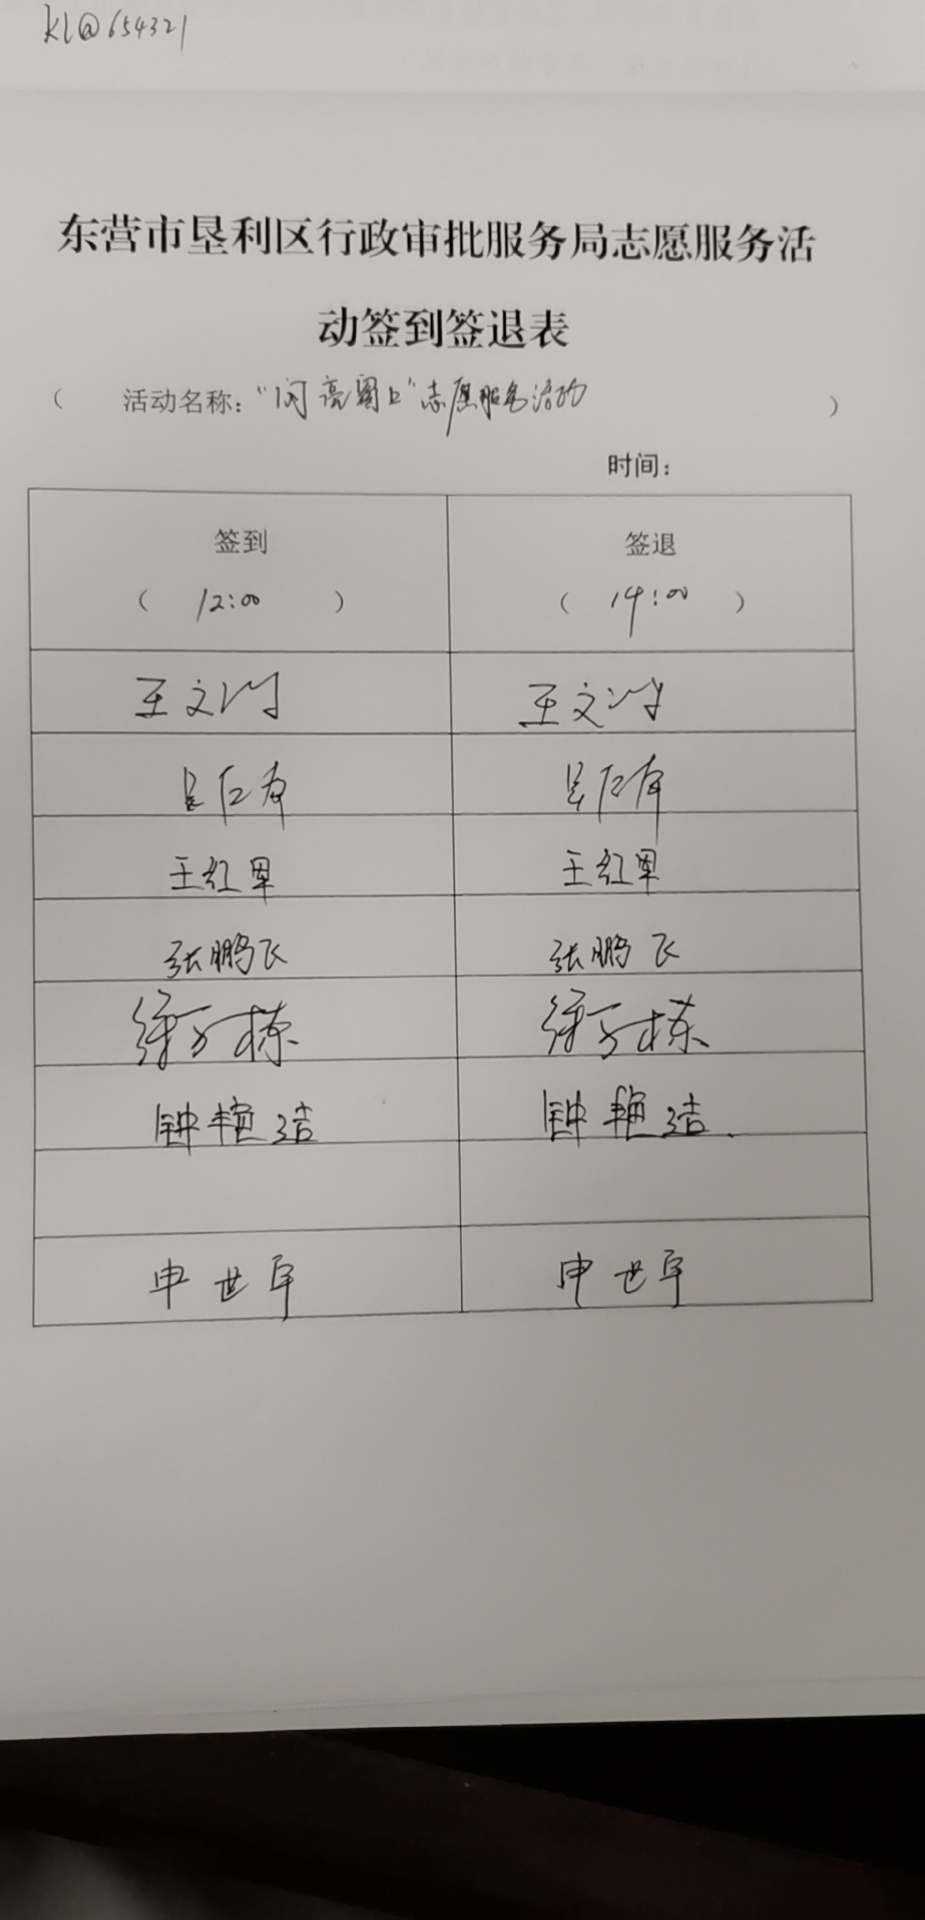 kl@654321
东营市垦利区行政审批服务局志愿服务活
动签到签退表
( 活动名称:“闪亮窗口”志愿服务活动 )
时间:
签到 签退
( 12:00 ) ( 14:00 )
王文 王文
王红军 王红军
张鹏飞 张鹏飞
徐万栋 徐万栋
钟艳洁 钟艳洁
申世军 申世军